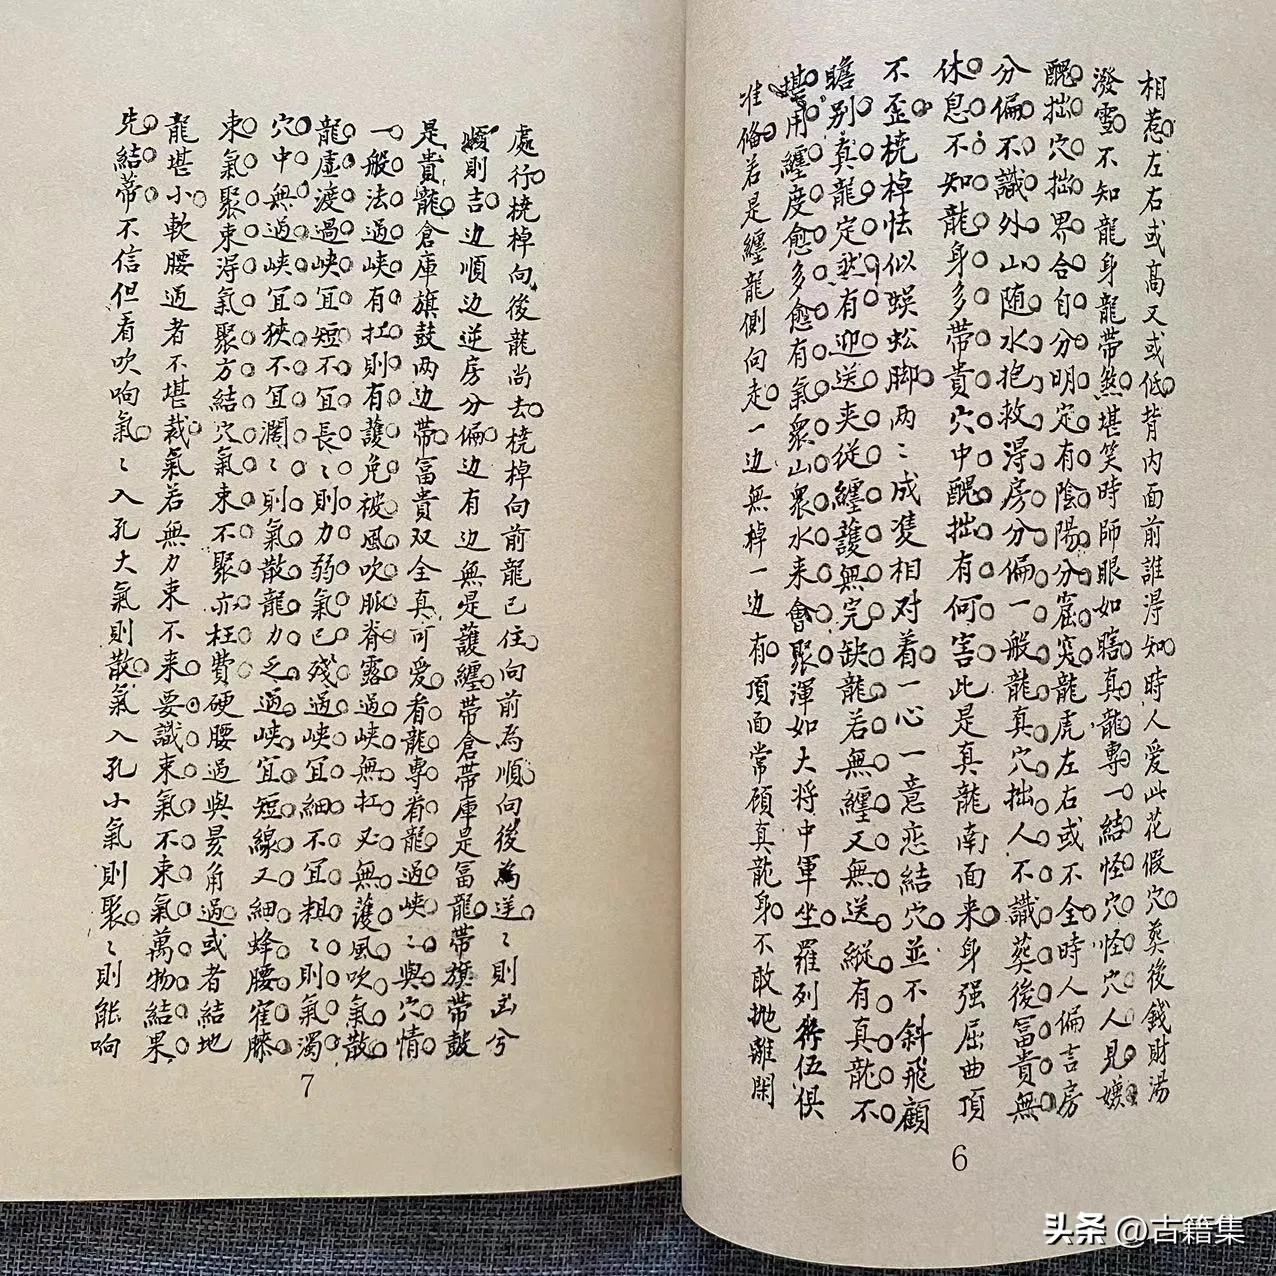 相惹左右或高又或低背内面前誰淂知時人爱此花假穴葬後錢財湯
潑雪不知龍身龍帶煞堪笑時師眼如瞎真龍專一結怪穴怪穴人見嫌
醜拙穴拙界合自分明定有陰陽分窟突龍虎左右或不全時人偏言房
分偏不識外山随水抱救淂房分偏一般龍真穴拙人不識葬後富貴無
休息不知龍身多帶貴穴中醜拙有何害此是真龍南面来身强屈曲頂
不歪桡棹怯似蜈蚣脚两〻成隻相对着一心一意恋結穴並不斜飛顧
瞻别真龍定迯有迎送夹従纒護無完缺龍若無纒又無送縱有真龍不
堪用纒度愈多愈有氣衆山衆水来會聚渾如大将中軍坐羅列行伍俱
准俻若是纒龍側向走一边無棹一边有頂面常顧真龍身不敢抛離閑
處行桡棹向後龍尚去桡棹向前龍已住向前為順向後為逆〻則凶兮
順則吉边順边逆房分偏边有边無是護纒帶倉帶庫是富龍帶旗帶鼓
是貴龍倉庫旗鼓两边帶富貴双全真可爱看龍專看龍過峡〻與穴情
一般法過峡有扛則有護免被風吹脈脊露過峡無扛又無護風吹氣散
龍虚渡過峡宜短不宜長〻則力弱氣已残過峡宜細不宜粗〻則氣濁
穴中無過峡宜狹不宜濶〻則氣散龍力乏過峡宜短線又細蜂腰寉膝
束氣聚束淂氣聚方結穴氣束不聚亦枉費硬腰過與晏角過或者結地
龍堪小軟腰過者不堪裁氣若無力束不来要識束氣不束氣萬物結果
先結蒂不信但看吹响氣〻入孔大氣則散氣入孔小氣則聚〻則能响
7
6
头条 @古籍集